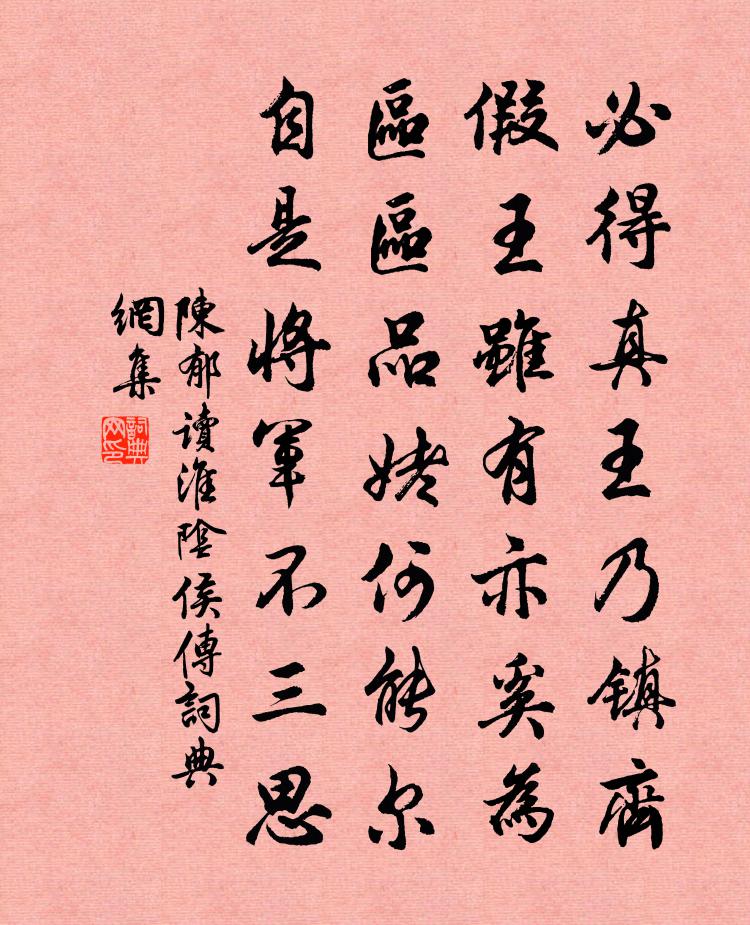 必得真王乃镇齊
假王雖有亦奚為
區區品姥何能尔
自是将軍不三思
陳郁讀淮陰侯傳詞典
網集
詞典
网印